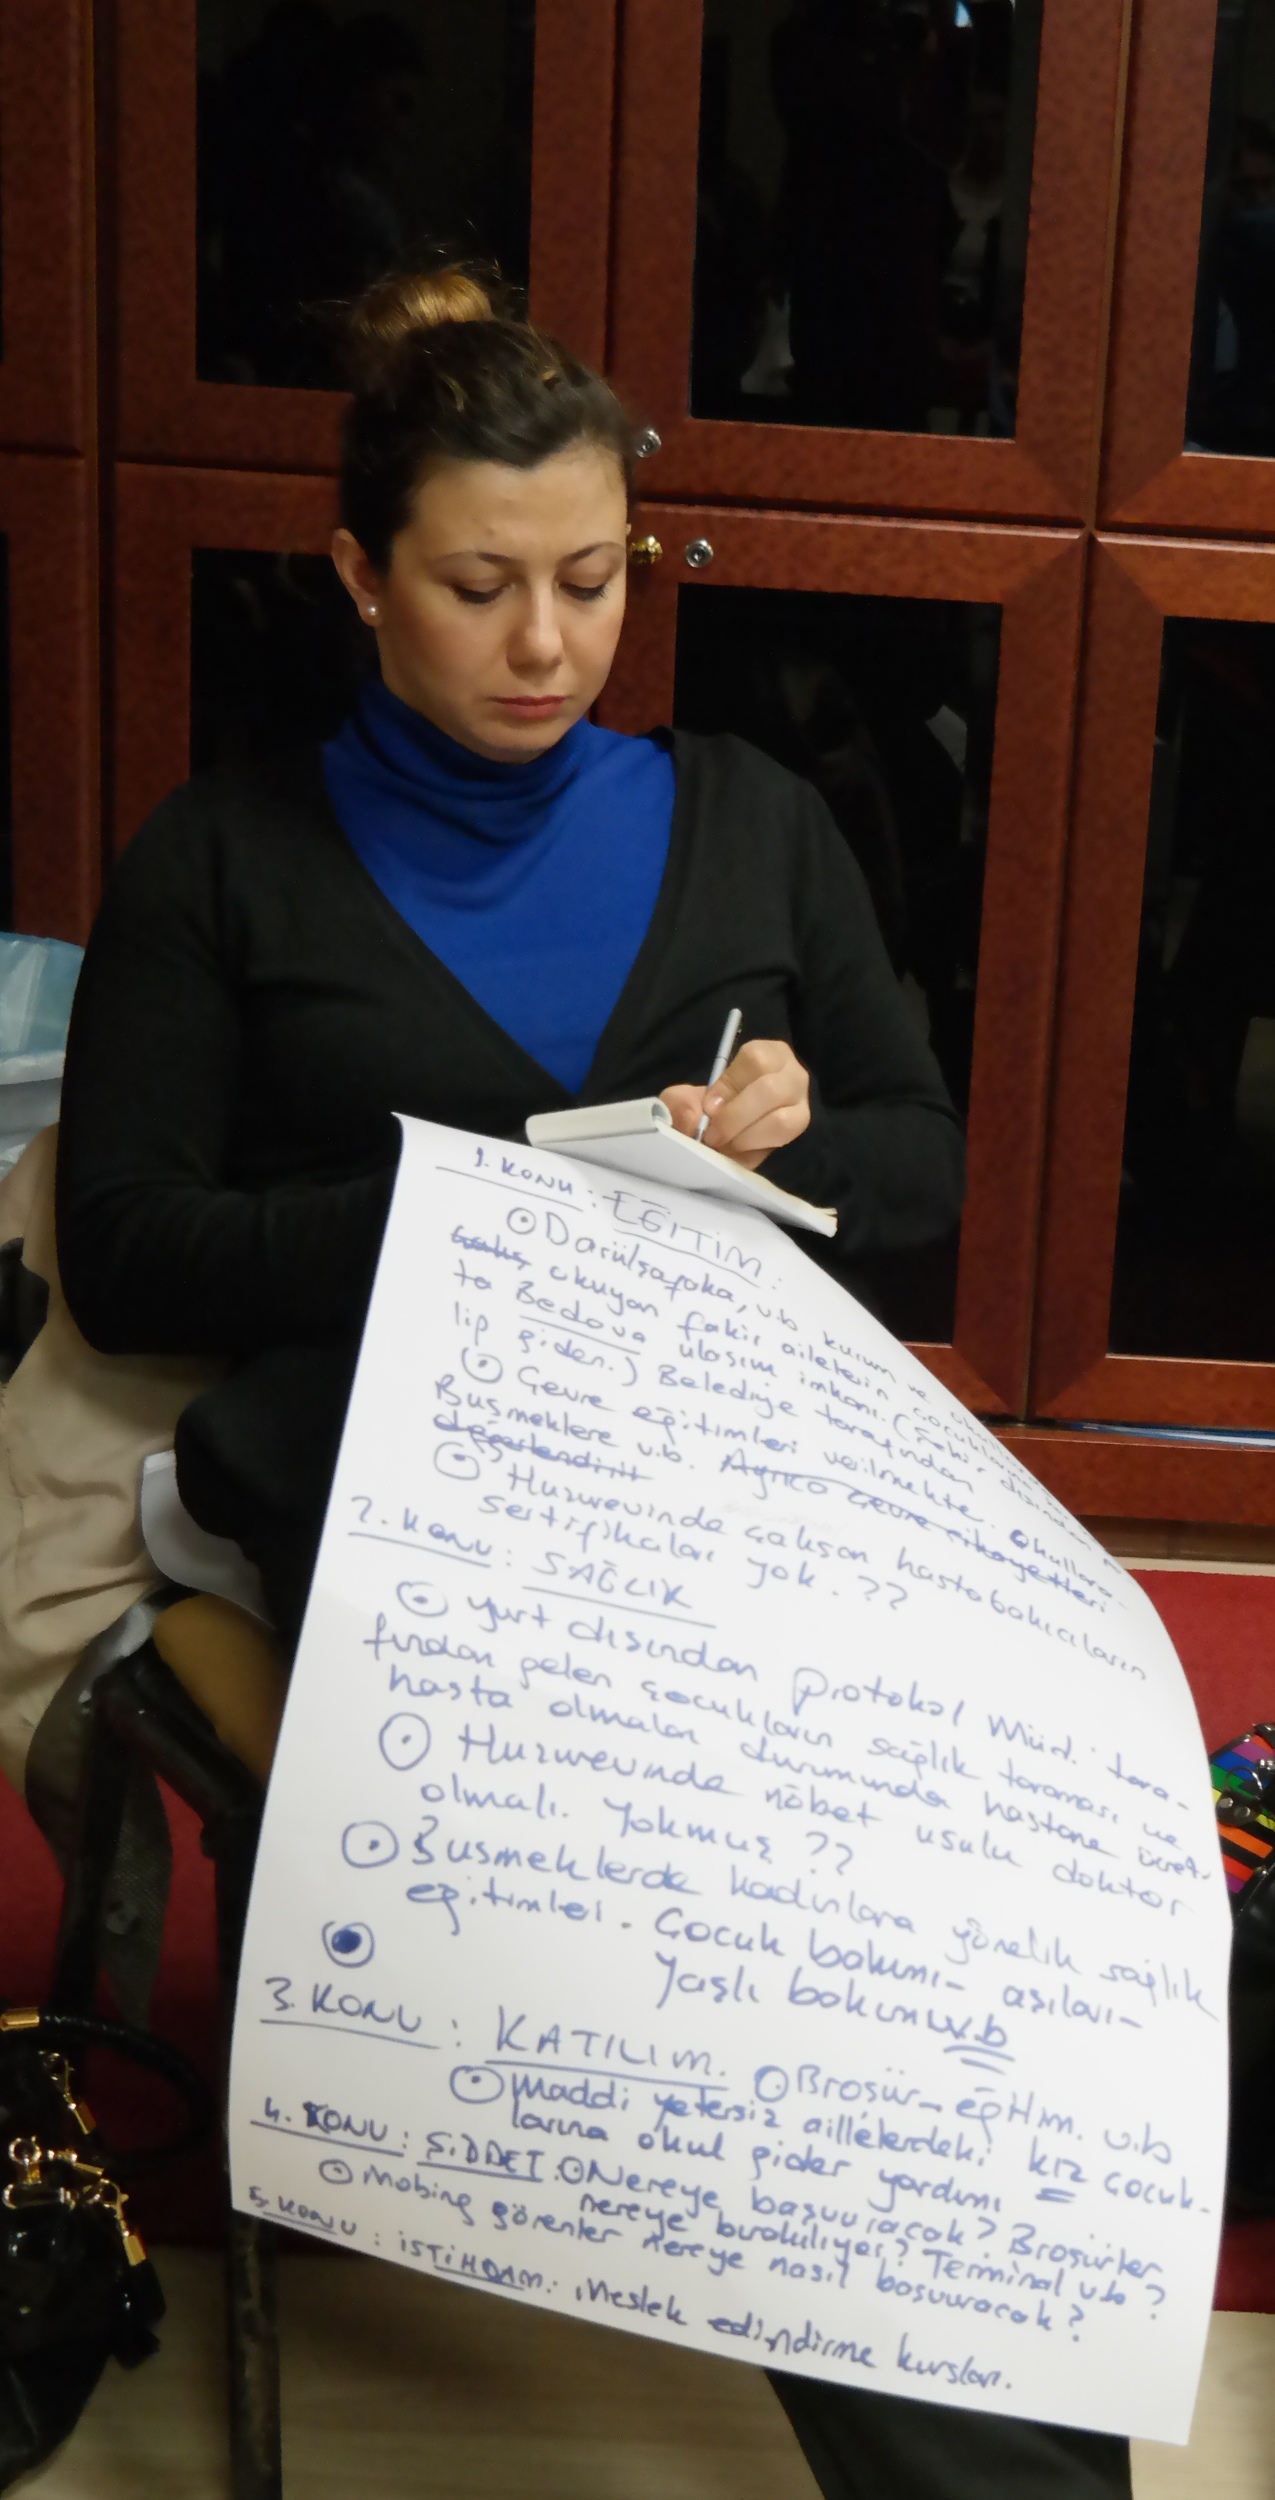 1. KONU : EĞİTİM :
⊙ Darülşafaka, v.b kurum ve
okuyan fakir ailelerin çocuklarına
ta Bedava ulaşım imkanı. (Şehir dışından
lip giden.) Belediye tarafından
⊙ Çevre eğitimleri verilmekte. Okullara
Busmeklere v.b. Ayrıca çevre şikayetleri
değerlendirit
⊙ Huzurevinde çalışan hastabakıcıların
sertifikaları yok. ??
2. Konu : SAĞLIK
⊙ yurt dışından protokol Müd. tara-
fından gelen çocukların sağlık taraması ve
hasta olmaları durumunda hastane ücret.
⊙ Huzurevinde nöbet usulu doktor
olmalı. Yokmuş ??
⊙ Busmeklerde kadınlara yönelik sağlık
eğitimleri. Çocuk bakımı - aşıları -
yaşlı bakımı v.b
3. KONU : KATILIM. ⊙ Broşür - eğitim. v.b
⊙ Maddi yetersiz aillelerdeki kız çocuk-
larına okul gider yardımı
4. KONU : ŞİDDET. ⊙ Nereye başvuracak? Broşürler
nereye bırakılıyor? Terminal v.b ?
⊙ Mobing görenler nereye nasıl başvuracak?
5. KONU : İSTİHDAM : Meslek edindirme kursları.